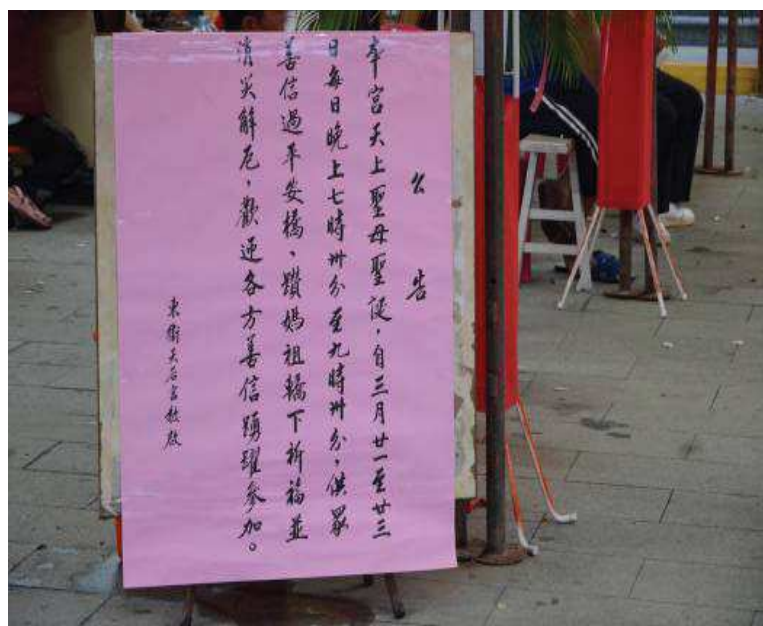 公告
本宮天上聖母聖誕，自三月廿一至廿三
日每日晚上七時卅分至九時卅分，供眾
善信過平安橋、鑽媽祖轎下祈福並
消災解厄，歡迎各方善信踴躍參加。
東衛天后宮敬啟